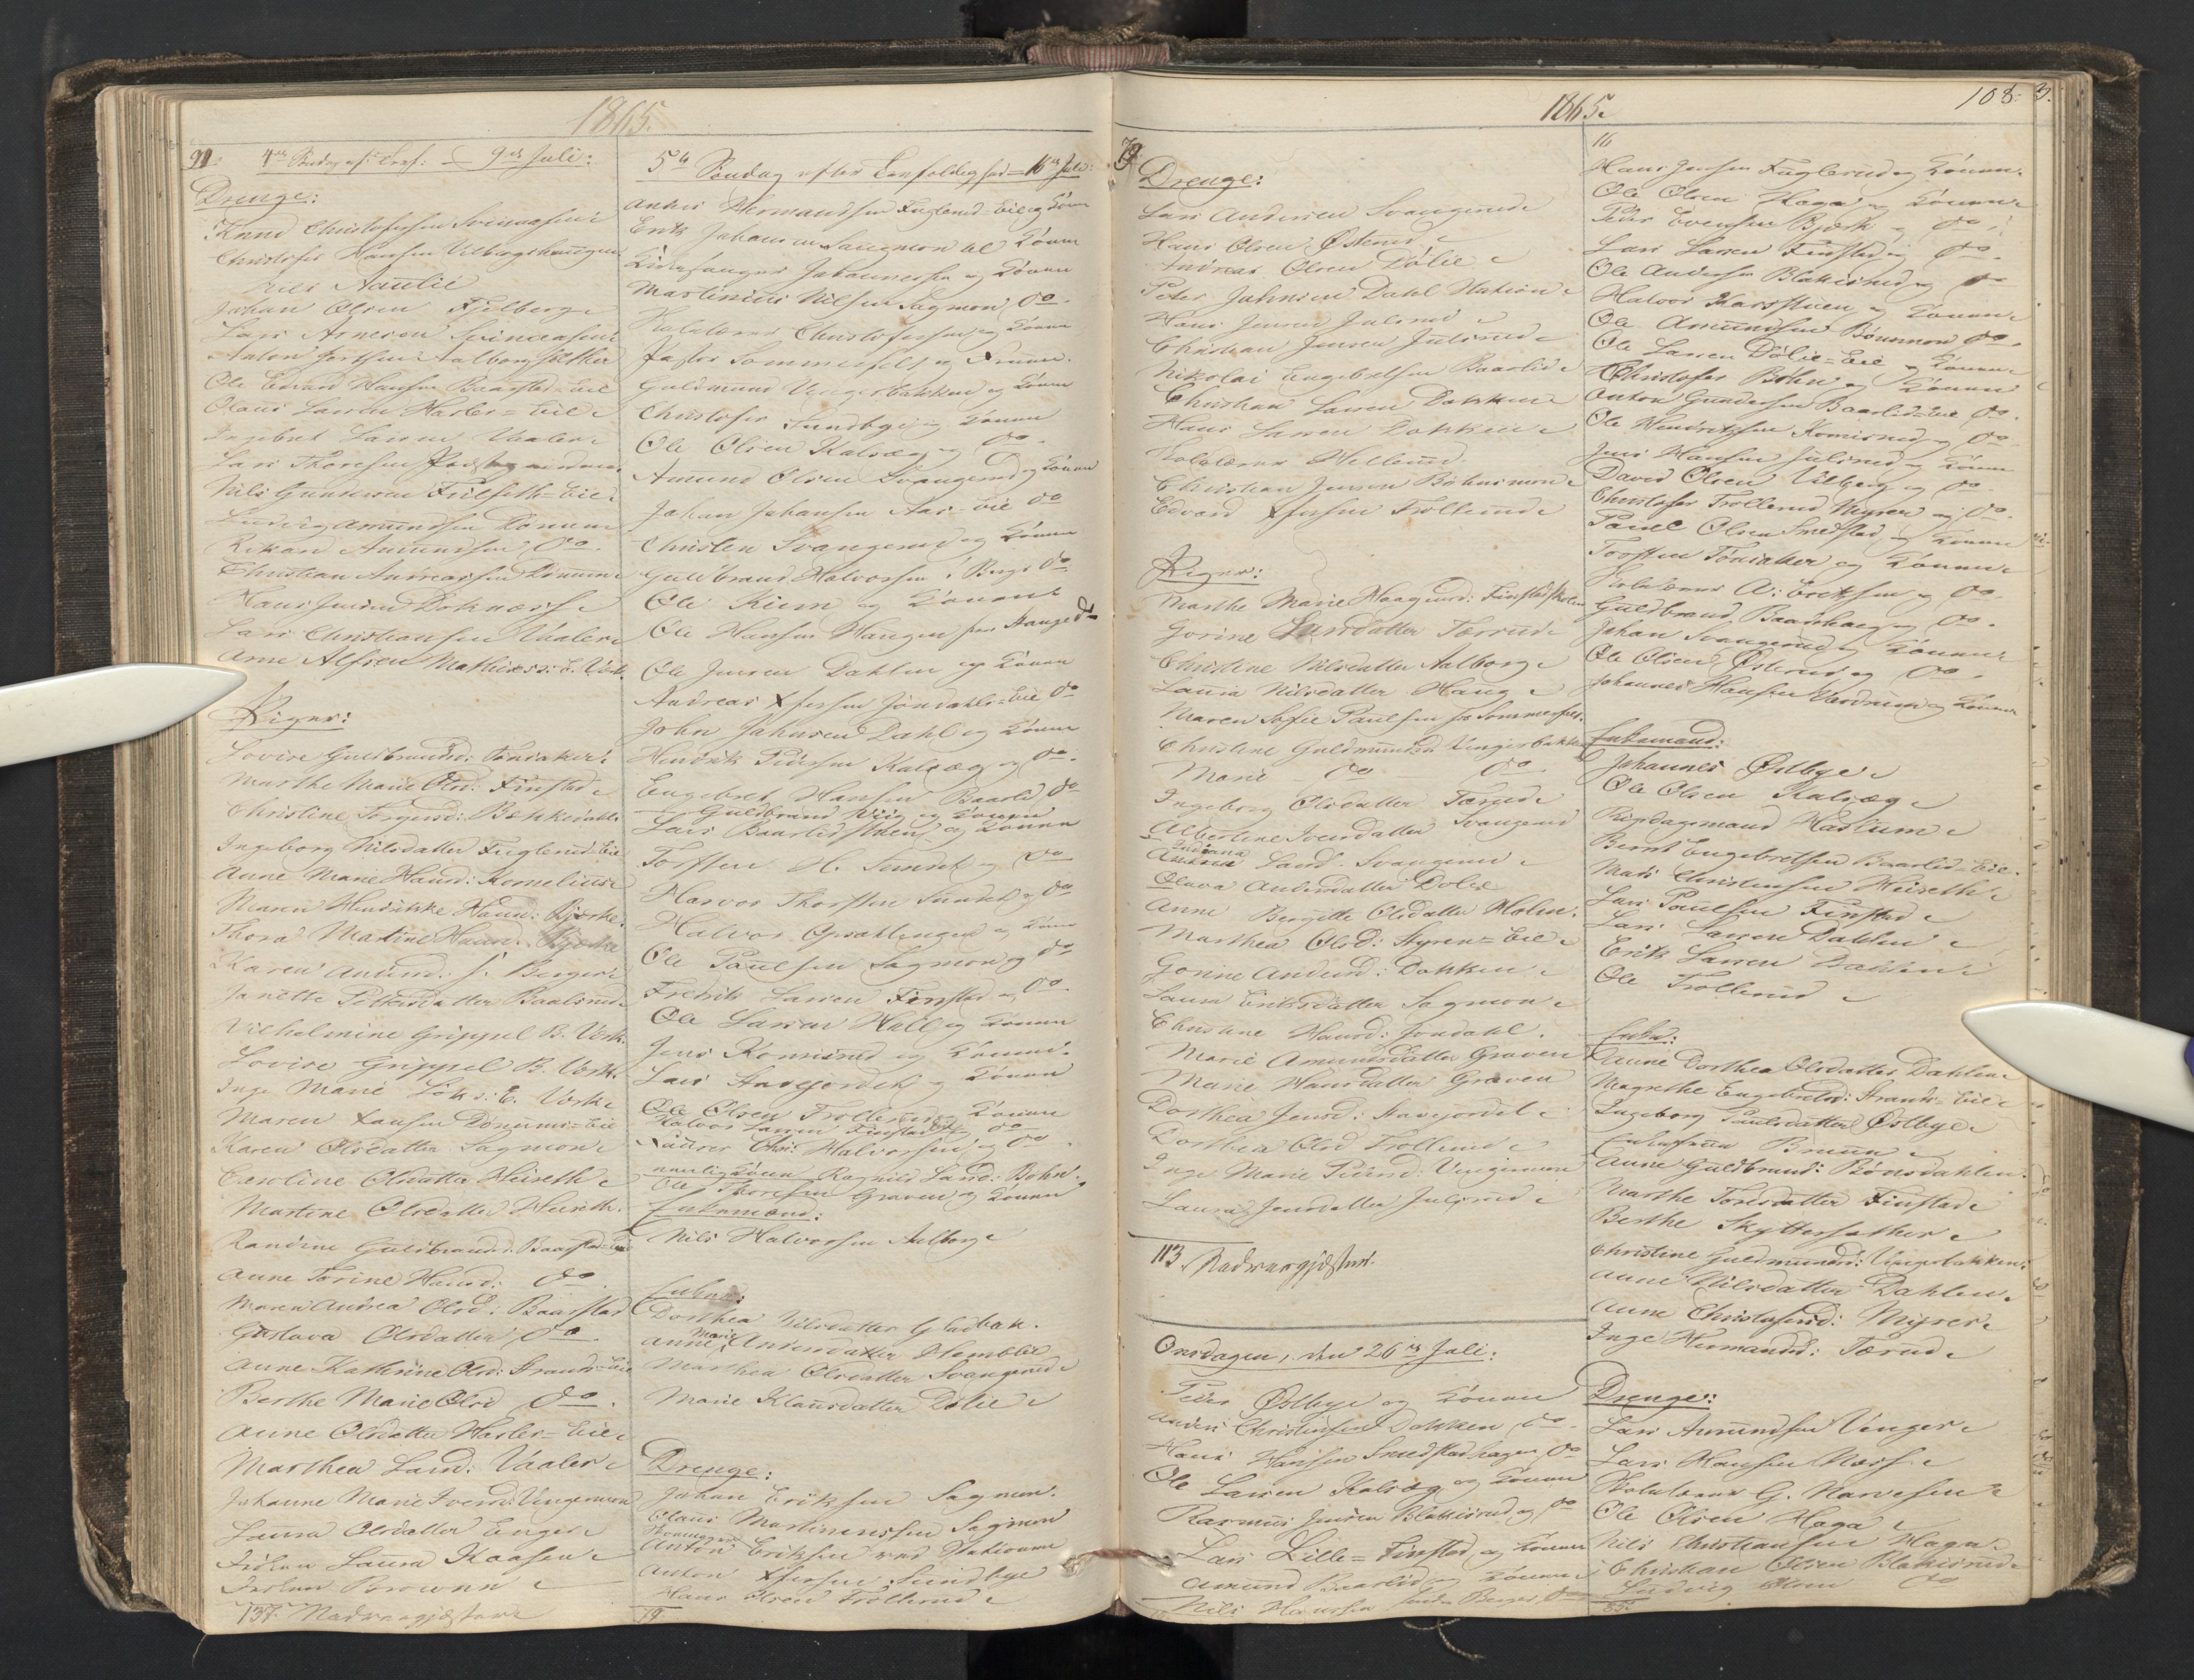 1865.
91.
4de Søndag ef: Tref: D 9de Juli:
Drenge:
Knud Christofersen
Christofer Hansen Vilbergshaugen
Nils Aaulie
Johan Olsen Fjelberg
Lars Arnesen
Anton Jordsen Aalborgsæther
Ole Edvard Hansen Baarstad-Eie
Olaus Larsen Hasler=Eie
Ingebret Larsen Vaaler
Lars Thoresen
Nils Gundersen Fielseth=Eie
Ludvig Amundsen Dønnum
Rikard Amundsen do.
Christian Andreassen Dønnum
Hans Jensen Doknæss
Lars Christiansen Vaaler
Arne Alfsen Mathies: E. Værk.
Piger:
Lovise Guldbrandsd: Tønsaker
Marthe Marie Olsd: Finstad
Christine Torgersd: Bækkedahl
Ingeborg Nilsdatter Fuglerud=Eie
Anne Marie Hansd: Kornelius
Maren Hendrikke Hansd: Bjørke
Thora Martine Hansd: Bjørke
Karen Amund: s. Berger
Janette Pettersdatter Baalsrud
Vilhelmine Grippel B. Værk.
Lovise Grippel B. Værk.
Inge Marie E. Værk
Maren Hansen Dønnum=Eie
Karen Olsdatter Sagmon
Caroline Olsdatter Heiseth
Martine Olsdatter Heiseth.
Randine Guldbrandsd: Baarstad=Eie
Anne Torine Hansd: do.
Maren Andrea Olsd: Baarstad
Gustava Olsdatter do.
Anne Kathrine Olsd: Strand=Eie
Berthe Marie Olsd do.
Anne Olsdatter Hasler=Eie
Marthea Larsd: Vaaler
Johanne Marie Iversd: Vengermoen
Laura Olsdatter Enger
Frøken Laura Kaasen
Frøken
137. Nadvergjæster
5te Søndag efter Trefoldighed = 16de Juli:
Anders Hermandsen Fuglerud=Eie og Konen
Erik Johansen Sangmon al Konen
Kirkesanger Johannessen og Konen
Martinius Nilsen Sagmon do.
Skolelærer Christofersen og Konen
Pastor Sommerfelt og Fruen.
Guldmund Vengerbakken og Konen
Christofer Sundbye og Konen
Ole Olsen Kalsæg og do.
Amund Olsen Svangerud og Konen
Johan Johansen Aas=Eie do
Christen Svangerud og Konen
Guldbrand Halvorsen i Berge do
Ole Kiem og Konen
Ole Hansen Haugen fra Stange do
Ole Jensen Dahlen og Konen
Andreas Xfersen Jondahls=Eie do
John Johnsen Dahl og Konen
Hendrik Pedersen Kalsæg og do.
Engebret Hansen Baarlid do
Guldbrand Riig og Konen
Lars Baarlidstuen og Konen
Torsten H. Sundet og do
Harvor Thorsten Sundet og do
Halvor Opsahlengen og Konen
Ole Paulsen Sagmon og do
Fredrik Larsen Finstad og do.
Ole Larsen Hall og Konen
Jens Komisrud og Konen.
Lars Stavejordet og Konen
Ole Olsen Trollerud og Konen
Halvor Larsen Finstad og do
Chr: Halvorsen og do
nemlig Konen Ragnild Larsd: Bøhn.
Ole Thoresen Graven og Konen
Enkemænd:
Nils Halvorsen Aalborg
Enker:
Dorthea Nilsdatter Gladbak.
Anne Marie Andersdatter Stemblie
Marthea Olsdatter Svangerud
Marie Klausdatter Dølie
Drenge:
Johan Eriksen Sagmon.
Olaus Martinussen Sagmon
Anton Eriksen ved Stationen
Anton Xfersen Sundbye
Hans Olsen Trollerud
79
1865.
108. 3.
79
Drenge:
Lars Andersen Svangerud
Hans Olsen Østerud
Andreas Olsen Dølie
Peter Johnsen Dahl Station
Hans Jensen Julsrud
Christian Jensen Julsrud
Nikolai Engebretsen Baarlid
Christian Larsen Dokken
Hans Larsen Dokken
Skolelærer Hellerud
Christian Jensen Bøhnsmon
Edvard Xfersen Trollerud
Piger:
Marthe Marie Haagensd: Finstadskolen
Gorine Larsdatter Tærud
Christine Nilsdatter Aalborg
Laura Nilsdatter Haug
Maren Sofie Paulsen fra Sommerfelt.
Christine Guldmundsd: Vengerbakken
Marie do do.
Ingeborg Olsdatter Tærud
Albertine Iversdatter Svangerud
Indiana Larsd: Svangerud
Olava Andersdatter Dølie
Anne Bergitte Olsdatter Holen.
Marthea Olsd: Styren=Eie
Gorine Andersd: Dokken
Laura Eriksdatter Sagmon
Christine Hansd: Jondahl.
Marie Amundsdatter Graven
Marie Hansdatter Graven
Dorthea Jensd: Stavejordet
Dorthea Olsd Trollerud
Inge Marie Pedersd: Vengermoen
Laura Jensdatter Julsrud
113. Nadvergjæster.
Onsdagen, den 26de Juli:
Peder Østbye og Konen
Anders Christensen Dokken do.
Hans Hansen Smedstadhagen do
Ole Larsen Kalsæg og Konen
Rasmus Jensen Blakisrud og do
Lars Lille=Finstad og Konen
Amund Baarlid og Konen
Nils Hansen Søndre Berger do
16
Hans Jensen Fuglerud og Konen.
Ole Olsen Haga og Konen
Peder Evensen Bjørk og do.
Lars Larsen Finstad og do.
Ole Andersen Blakisrud og do
Halvor Skarstuen og Konen
Ole Amundsen Bønsmon do.
Ole Larsen Dølie=Eie og Konen
Christofer Bøhn og Konen
Anton Gundersen Baarlid=Eie do.
Ole Hendriksen Komisrud og do.
Jens Hansen Julsrud og Konen
David Olsen Vilberg og do.
Christofer Trollerud Myren og do.
Paul Olsen Smedstad og Konen
Torsten Tønsaker og Konen
Skolelærer A: Eriksen og do.
Guldbrand Baarshaug og do.
Johan Svangerud og Konen
Ole Olsen Østerud og do.
Johannes Hansen Værdrum og Konen
Enkemænd:
Johannes Østbye
Ole Olsen Kalsæg
Rigsdagsmand Haslum
Bernt Engebretsen Baarlid=Eie.
Mads Christensen Heiseth
Lars Poulsen Finstad
Lars Larsen Dahlen
Erik Larsen Dahlen
Ole Trollerud
Enker:
Anne Dorthea Olsdatter Dahlen
Magrethe Engebretsd: Strand=Eie
Ingeborg Paulsdatter Østbye
Enkefrue Bruun
Anne Guldbrandsd: Bønsdahlen.
Marthe Tordsdatter Finstad
Berthe Skyttersæther
Christine Guldmundsd: Vengerbakken
Anne Nilsdatter Dahlen
Anne Christofersd: Myrer
Inge Hermandsd: Tærud
Drenge:
Lars Amundsen Venger
Lars Hansen Næss
Skolelærer G. Narvesen
Ole Olsen Haga
Nils Christiansen Haga
Christian Olsen Blakisrud
Ludvig Olsen do
85